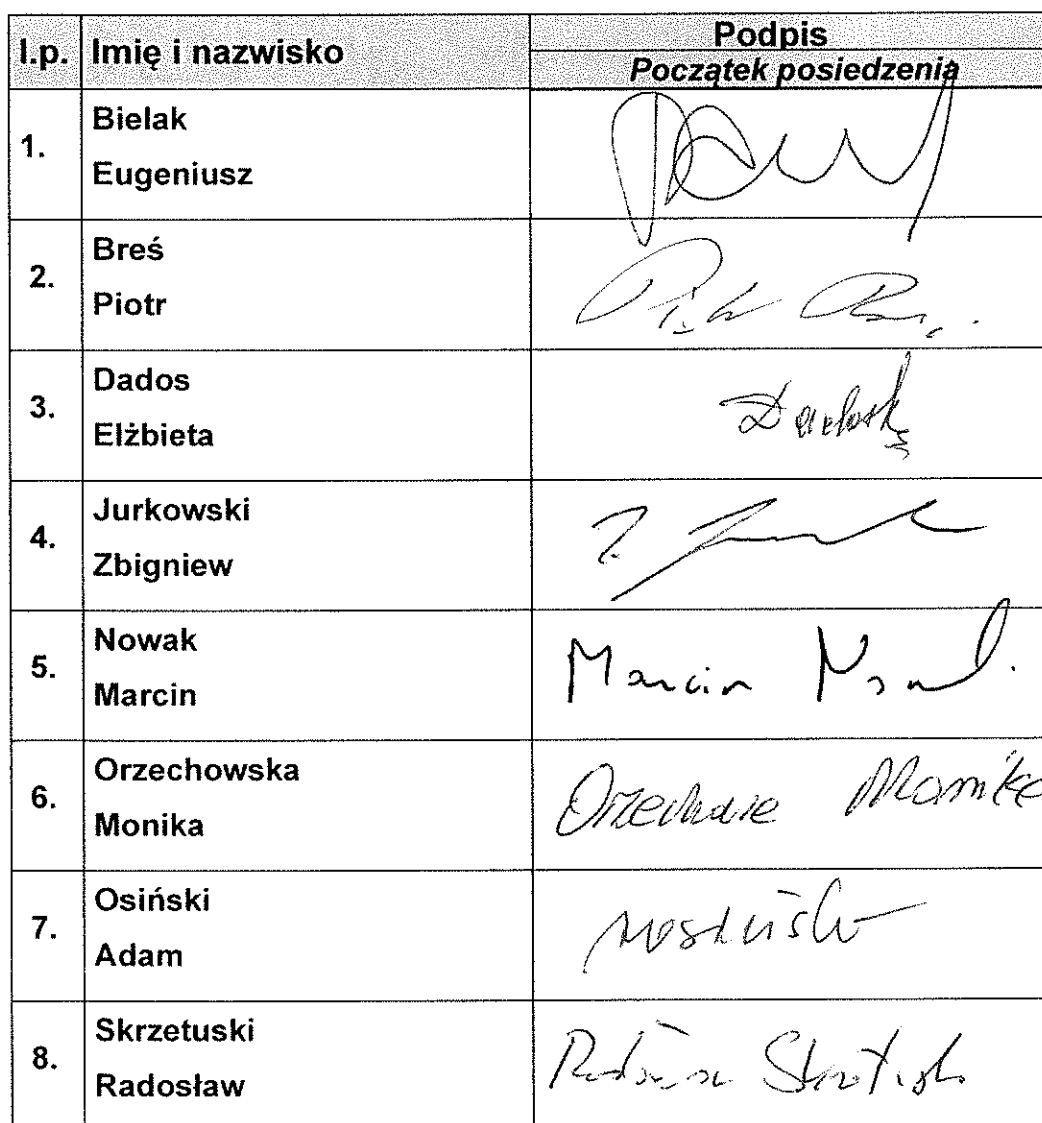 l.p. Imię i nazwisko Podpis
Początek posiedzenia
1. Bielak
Eugeniusz
2. Breś
Piotr
3. Dados
Elżbieta
4. Jurkowski
Zbigniew
5. Nowak
Marcin
Marcin
6. Orzechowska
Monika
Monika
7. Osiński
Adam
8. Skrzetuski
Radosław